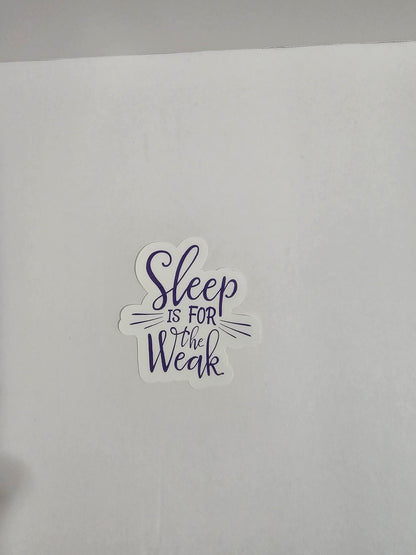 Sleep
IS FOR
the
Weak